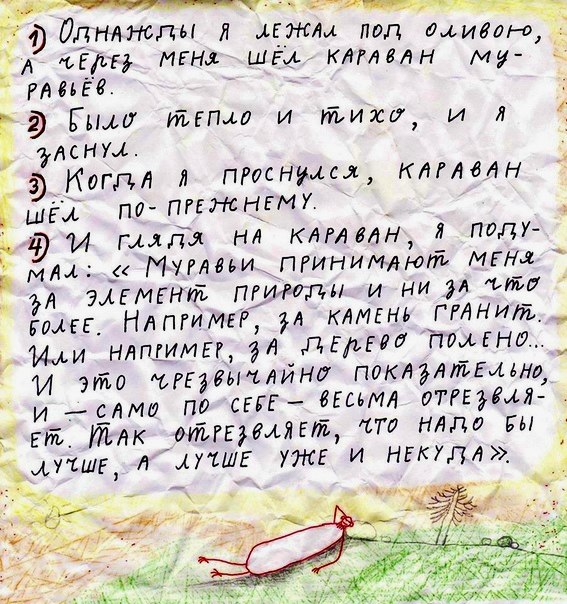 1) Однажды я лежал под оливою,
а через меня шёл караван му-
равьёв.
2) Было тепло и тихо, и я
заснул.
3) Когда я проснулся, караван
шёл по-прежнему.
4) И глядя на караван, я поду-
мал: «Муравьи принимают меня
за элемент природы и ни за что
более. Например, за камень гранит.
Или например, за дерево полено...
И это чрезвычайно показательно,
и — само по себе — весьма отрезвля-
ет. Так отрезвляет, что надо бы
лучше, а лучше уже и некуда».